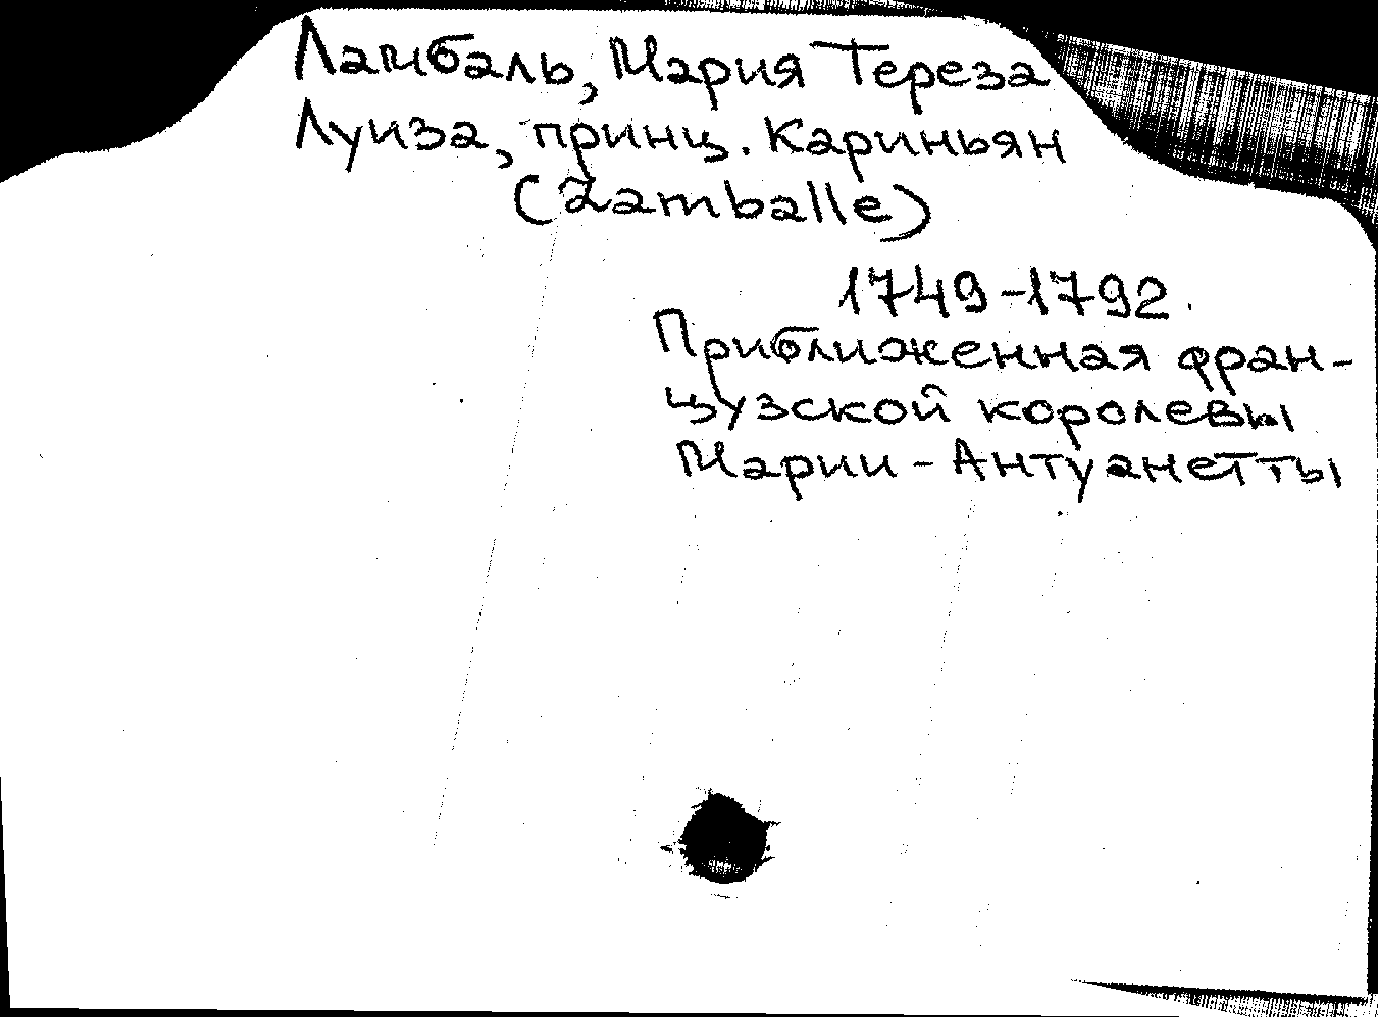 Ламбаль, Мария Тереза
Луиза, принц. Кариньян
(Lamballe)
1749-1792.
Приближенная фран-
цузской королевы
Марии-Антуанетты